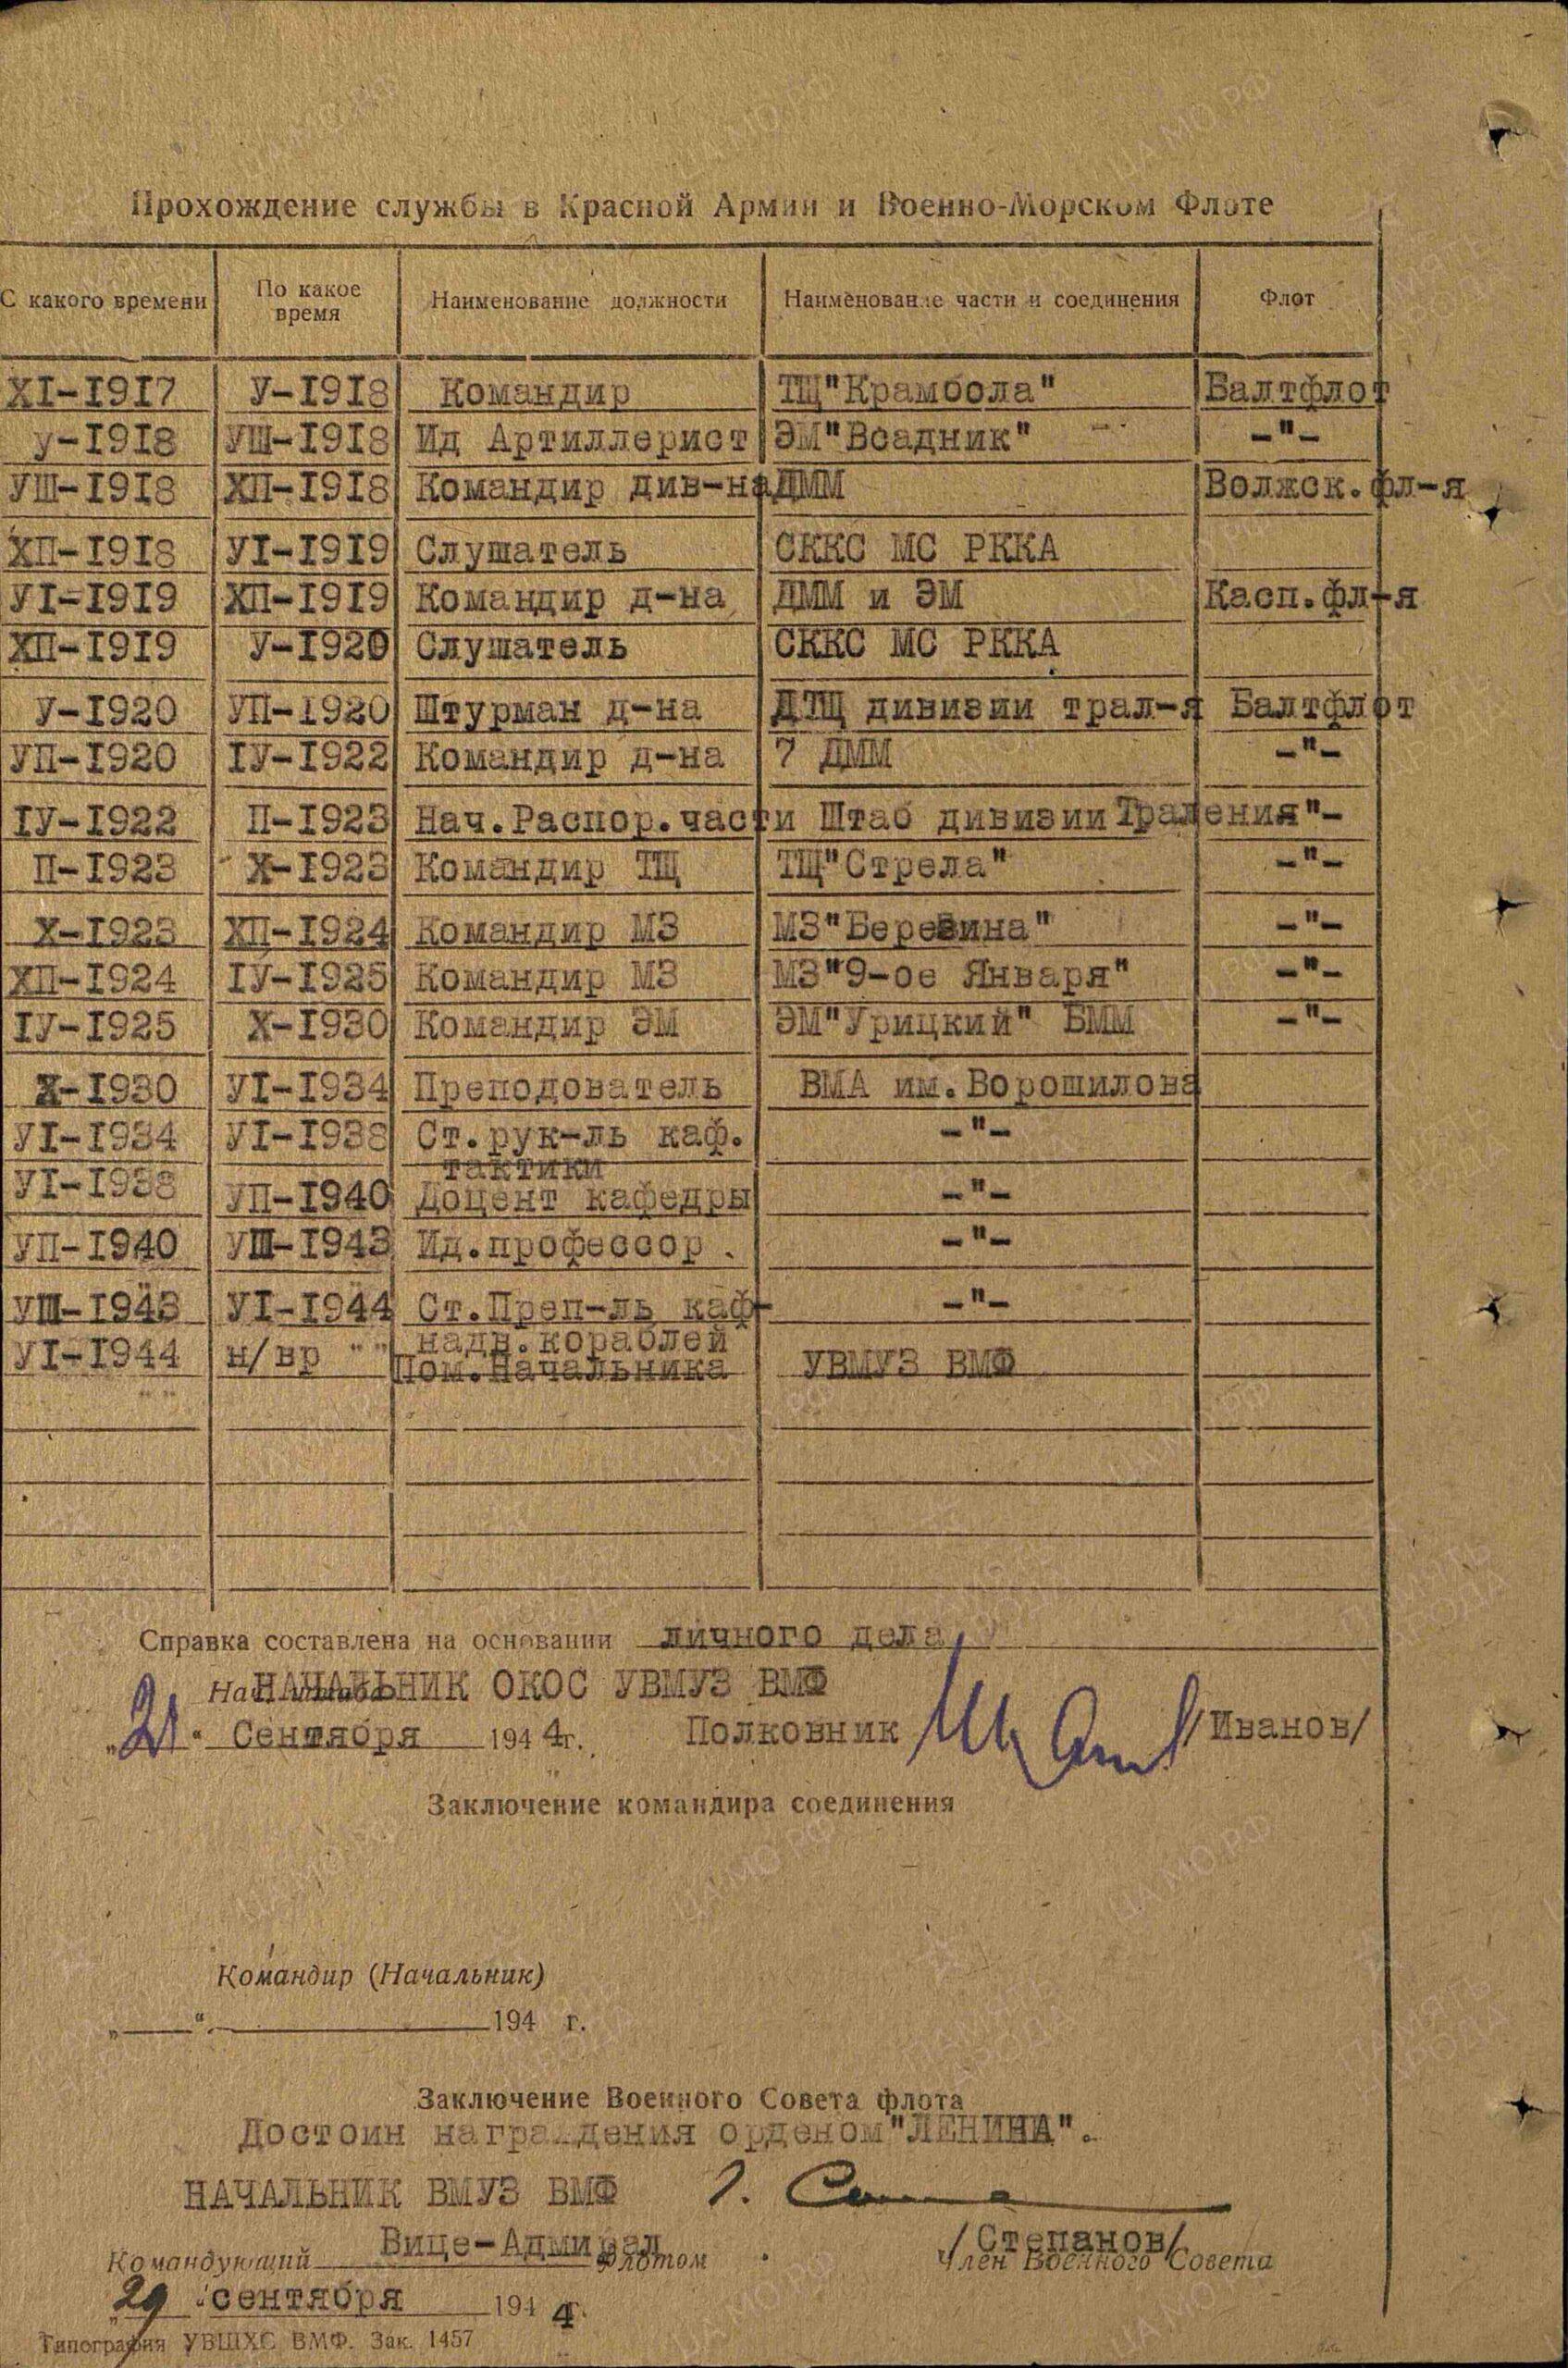 Прохождение службы в Красной Армии и Военно-Морском Флоте
С какого времени | По какое время | Наименование должности | Наименование части и соединения | Флот
XI-I9I7 | У-I9I8 | Командир | ТЩ"Крамбола" | Балтфлот
у-I9I8 | УШ-I9I8 | Ид Артиллерист | ЭМ"Всадник" | -"-
УШ-I9I8 | ХП-I9I8 | Командир див-на | ДММ | Волжск.фл-я
ХП-I9I8 | УI-I9I9 | Слушатель | СККС МС РККА
УI-I9I9 | ХП-I9I9 | Командир д-на | ДММ и ЭМ | Касп.фл-я
ХП-I9I9 | У-I920 | Слушатель | СККС МС РККА
У-I920 | УП-I920 | Штурман д-на | ДТЩ дивизии трал-я | Балтфлот
УП-I920 | IУ-I922 | Командир д-на | 7 ДММ | -"-
IУ-I922 | П-I923 | Нач.Распор.части | Штаб дивизии Траления | "-
П-I923 | Х-I923 | Командир ТЩ | ТЩ"Стрела" | -"-
Х-I923 | ХП-I924 | Командир МЗ | МЗ"Березина" | -"-
ХП-I924 | IУ-I925 | Командир МЗ | МЗ"9-ое Января" | -"-
IУ-I925 | Х-I930 | Командир ЭМ | ЭМ"Урицкий" БММ | -"-
Х-I930 | УI-I934 | Преподователь | ВМА им.Ворошилова
УI-I934 | УI-I938 | Ст.рук-ль каф. | -"-
тактики
УI-I938 | УП-I940 | Доцент кафедры | -"-
УП-I940 | УШ-I943 | Ид.профессор . | -"-
УШ-I943 | УI-I944 | Ст.Преп-ль каф- | -"-
надв.кораблей
УI-I944 | н/вр " " | Пом.Начальника | УВМУЗ ВМФ
Справка составлена на основании личного дела
НАЧАЛЬНИК ОКОС УВМУЗ ВМФ
„21" Сентября 194 4г. Полковник /Иванов/
Заключение командира соединения
Командир (Начальник)
„ " 194 г.
Заключение Военного Совета флота
Достоин награждения орденом"ЛЕНИНА".
НАЧАЛЬНИК ВМУЗ ВМФ
Вице-Адмирал /Степанов/
Командующий флотом Член Военного Совета
„29" сентября 194 4г.
Типография УВШХС ВМФ. Зак. 1457
ЦА МО РФ
ПАМЯТЬ НАРОДА